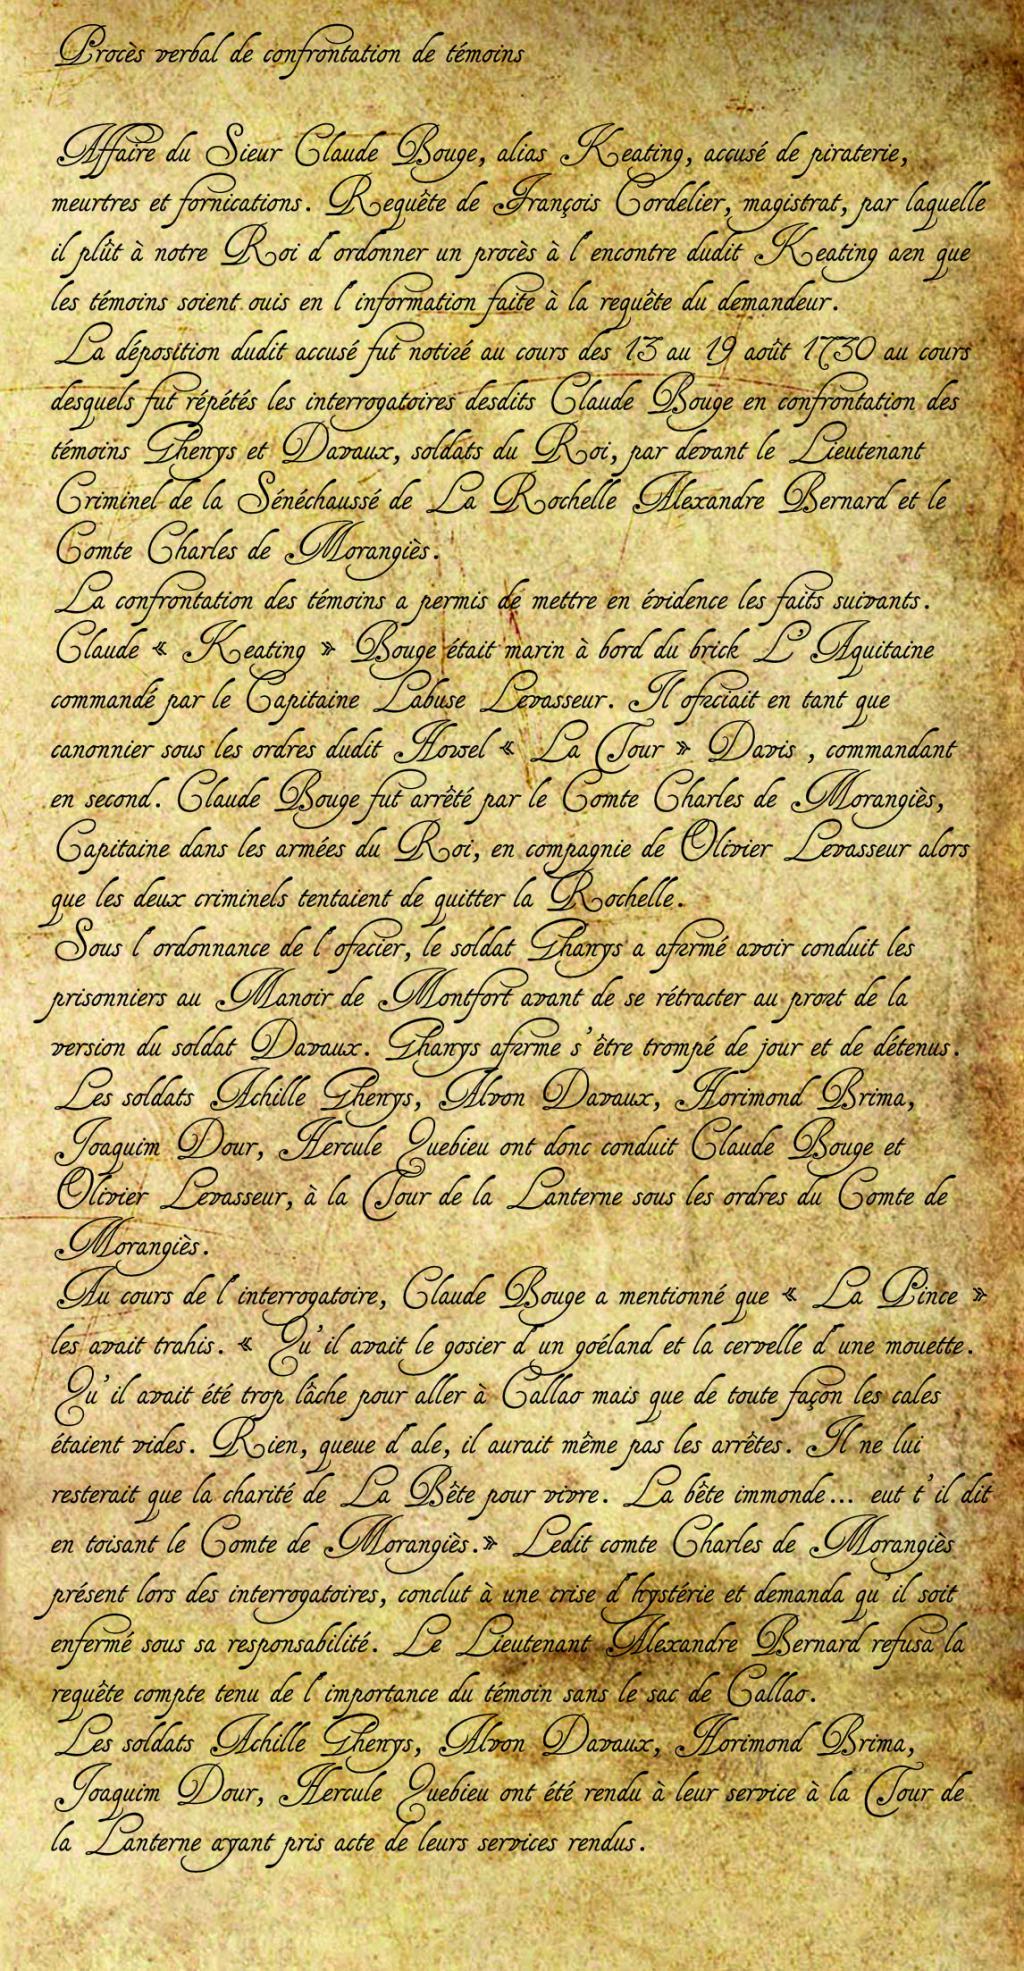 Procès verbal de confrontation de témoins
Affaire du Sieur Claude Bouge, alias Keating, accusé de piraterie,
meurtres et fornications. Requête de François Cordelier, magistrat, par laquelle
il plût à notre Roi d'ordonner un procès à l'encontre dudit Keating azn que
les témoins soient ouis en l'information faite à la requête du demandeur.
La déposition dudit accusé fut notizé au cours des 13 au 19 août 1730 au cours
desquels fut répétés les interrogatoires desdits Claude Bouge en confrontation des
témoins Ghenys et Davaux, soldats du Roi, par devant le Lieutenant
Criminel de la Sénéchaussé de La Rochelle Alexandre Bernard et le
Comte Charles de Morangiès.
La confrontation des témoins a permis de mettre en évidence les faits suivants.
Claude « Keating » Bouge était marin à bord du brick L'Aquitaine
commandé par le Capitaine Labuse Levasseur. Il ofzciait en tant que
canonnier sous les ordres dudit Howel « La Tour » Davis , commandant
en second. Claude Bouge fut arrêté par le Comte Charles de Morangiès,
Capitaine dans les armées du Roi, en compagnie de Olivier Levasseur alors
que les deux criminels tentaient de quitter la Rochelle.
Sous l'ordonnance de l'ofzcier, le soldat Ghanys a afzrmé avoir conduit les
prisonniers au Manoir de Montfort avant de se rétracter au prozt de la
version du soldat Davaux. Ghanys afzrme s'être trompé de jour et de détenus.
Les soldats Achille Ghenys, Alvon Davaux, Horimond Brima,
Joaquim Dour, Hercule Quebieu ont donc conduit Claude Bouge et
Olivier Levasseur, à la Tour de la Lanterne sous les ordres du Comte de
Morangiès.
Au cours de l'interrogatoire, Claude Bouge a mentionné que « La Pince »
les avait trahis. « Qu'il avait le gosier d'un goéland et la cervelle d'une mouette.
Qu'il avait été trop lâche pour aller à Callao mais que de toute façon les cales
étaient vides. Rien, queue d'ale, il aurait même pas les arrêtes. Il ne lui
resterait que la charité de La Bête pour vivre. La bête immonde... eut t'il dit
en toisant le Comte de Morangiès.» Ledit comte Charles de Morangiès
présent lors des interrogatoires, conclut à une crise d'hystérie et demanda qu'il soit
enfermé sous sa responsabilité. Le Lieutenant Alexandre Bernard refusa la
requête compte tenu de l'importance du témoin sans le sac de Callao.
Les soldats Achille Ghenys, Alvon Davaux, Horimond Brima,
Joaquim Dour, Hercule Quebieu ont été rendu à leur service à la Tour de
la Lanterne ayant pris acte de leurs services rendus.